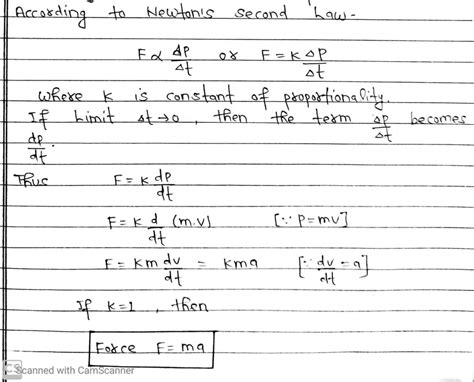 According to Newton's second Law-
F ∝ Δp/Δt or F = K Δp/Δt
where K is constant of proportionality.
If Limit Δt→0, then the term Δp/Δt becomes
dp/dt.
Thus F = K dp/dt
F = K d/dt (m.v) [∵ p=mv]
F = Km dv/dt = kma [∵ dv/dt = a]
If K=1, then
Force F=ma
CS Scanned with CamScanner